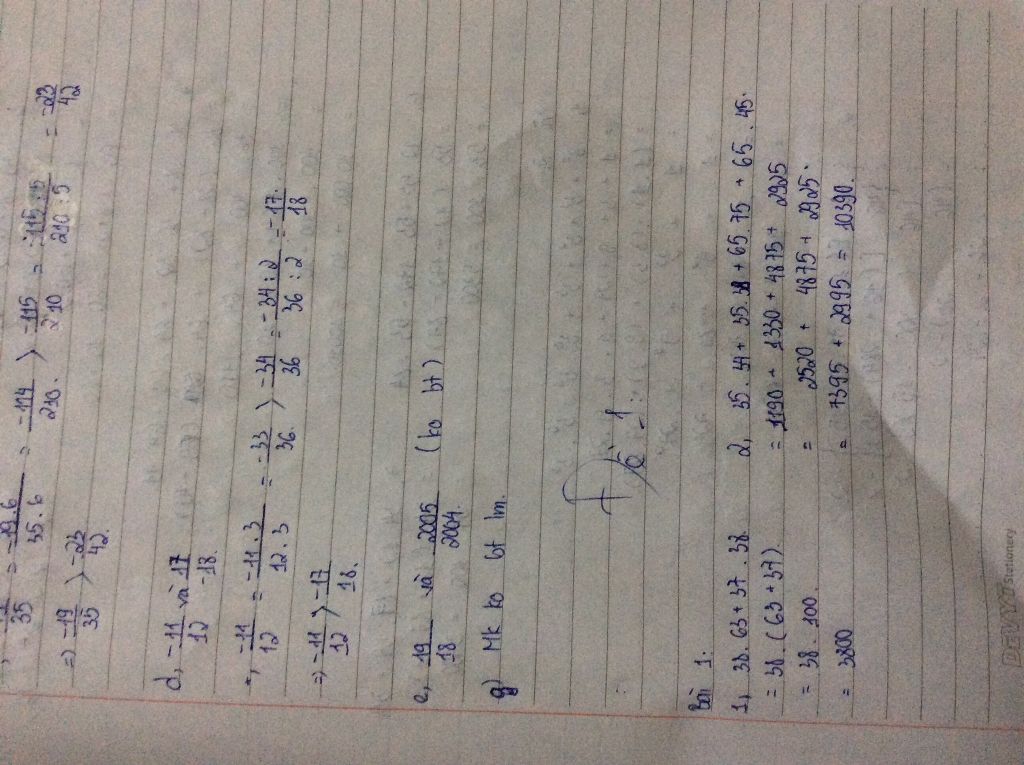 -19/35 = -19.6/35.6 = -114/210. > -115/210 = -115:5/210:5 = -23/42
=) -19/35 > -23/42.
d, -11/12 và 17/-18.
+, -11/12 = -11.3/12.3 = -33/36. > -34/36 = -34:2/36:2 = -17./18
=, -11/12 > -17/18.
e, 19/18 và 2005/2004. (ko bt)
g) Mk ko bt lm.
Đề 1:
Bài 1:
1, 38.63+37.38.
= 38.(63+37).
= 38.100.
= 3800
2, 35.34+35.38+65.75+65.45.
= 1190+1330+4875+2925
= 2520+4875+2925.
= 7395+2995=10390.
Stationery